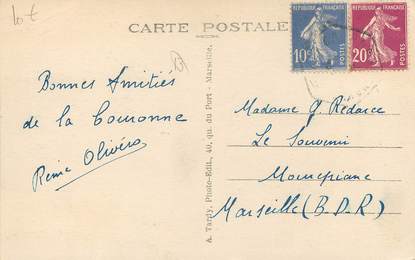 10 €
CARTE POSTALE
RÉPUBLIQUE FRANÇAISE
10c
POSTES
RÉPUBLIQUE FRANÇAISE
20c
POSTES
Bonnes Amitiés
de la Couronne
Reine Olivéro
A. Tardy, Photo-Edit., 40, qu. du Port - Marseille.
Madame J. Redarce
Le Souvenir
Mourepiane
Marseille (B.D.R)